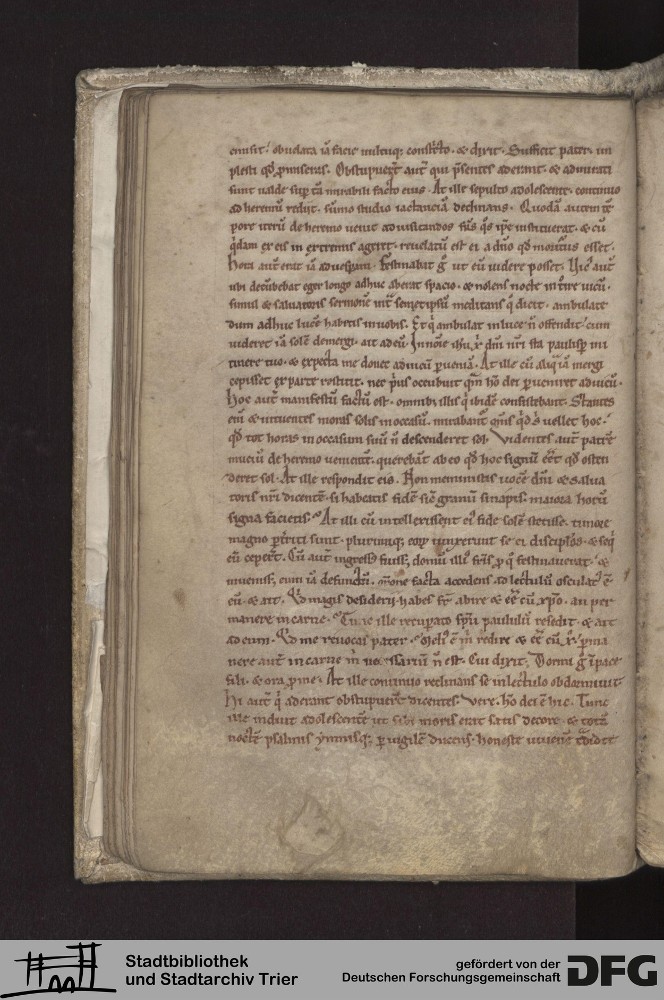 emisit. obvoluta iā facie
sunt ualde sup tā mirabili facto eius. At ille sepulto adolescente. continuo
ad heremū rediit. sūmo studio iactanciā declinans. Quodā autem tꝑ
pore iterū de heremo uenit ad uisitandos frēs q̄s ip̄e instituerat. & cū
q̄dam ex eis in extremis ageret. reuelatū est ei a dn̄o qd̄ moriturus esset.
Hora aut̄ erat iā aduesꝑam. Festinabat g̊ ut eū uidere posset.
ubi decūbebat eger longo adhuc aberat spacio. & nolens nocte int̄re uicū.
simul & saluatoris sermonē int̄ semetipsū meditans q̄ dicit. ambulate
dum adhuc lucē habetis in uobis. Et q̄ ambulat in luce n̄ offendit. cum
uideret iā solē demergi. ait ad eū. In noīe ihu xp̄i dn̄i nr̄i sta paulisꝑ in
itinere tuo. & expecta me donec ad uicū ꝑueniā. At ille cū aliq̄ iā mergi
cepisset ex parte restitit. nec p̄us occubuit qm̄ hō dei ꝑueniret ad uicū.
Hoc aut̄ manifestū factū est. omnibꝰ illis q̄ ibidē consistebant. Stantes
enī & intuentes moras solis in occasū. mirabant̄ qd̄ s̄ uellet hoc.
qd̄ tot horas in occasum suū n̄ descenderet sol. Videntes aut̄ patrē
muciū de heremo uenientē. querebāt ab eo qd̄ hoc signū eēt qd̄ osten
deret sol. At ille respondit eis. Non meministis uocē dn̄i & salua
toris nr̄i dicentē. si habeatis fidē sic granū sinapis. maiora horū
signa facietis. At illi cū intellexissent eiꝰ fide solē stetisse. timore
magno ꝑt̄riti sunt. plurimiq; eoꝝ iunxerunt se ei discipl̄os. & seq̄
eū ceper̄t. Cū aut̄ ingress fuiss& domū illiꝰ fr̄is ꝓ q̄ festinauerat. &
inueniss& eum iā defunctū. or̄one facta accedens ad lectulū osculatꝰ ē
eū. & ait. Qd̄ magis desiderii habes fr̄. abire & eē cū xp̄o. an per
manere in carne. Tunc ille recuperato sp̄u paululū resedit. & ait
ad eum. Qd̄ me reuocas pater. Meliꝰ ē m̄ redire & eē cū xp̄o. ꝑma
nere aut̄ in carne m̄ necessariū n̄ est. Cui dixit. Dormi g̊ in pace
fili. & ora ꝓ me. At ille continuo reclinans se in lectulo obdormiuit.
Hi aut̄ q̄ aderant obstupuer̄t dicentes. Vere. hō dei ē hic. Tunc
ille induit adolescentē ut sibi moris erat satis decore. & totā
noctē psalmis ymnisq; ꝑuigilē ducens. honeste
Stadtbibliothek
und Stadtarchiv Trier
gefördert von der
Deutschen Forschungsgemeinschaft
DFG